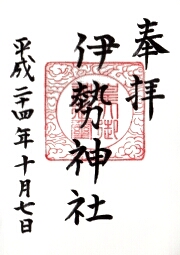 奉拝
伊勢神社
平成二十四年十月七日